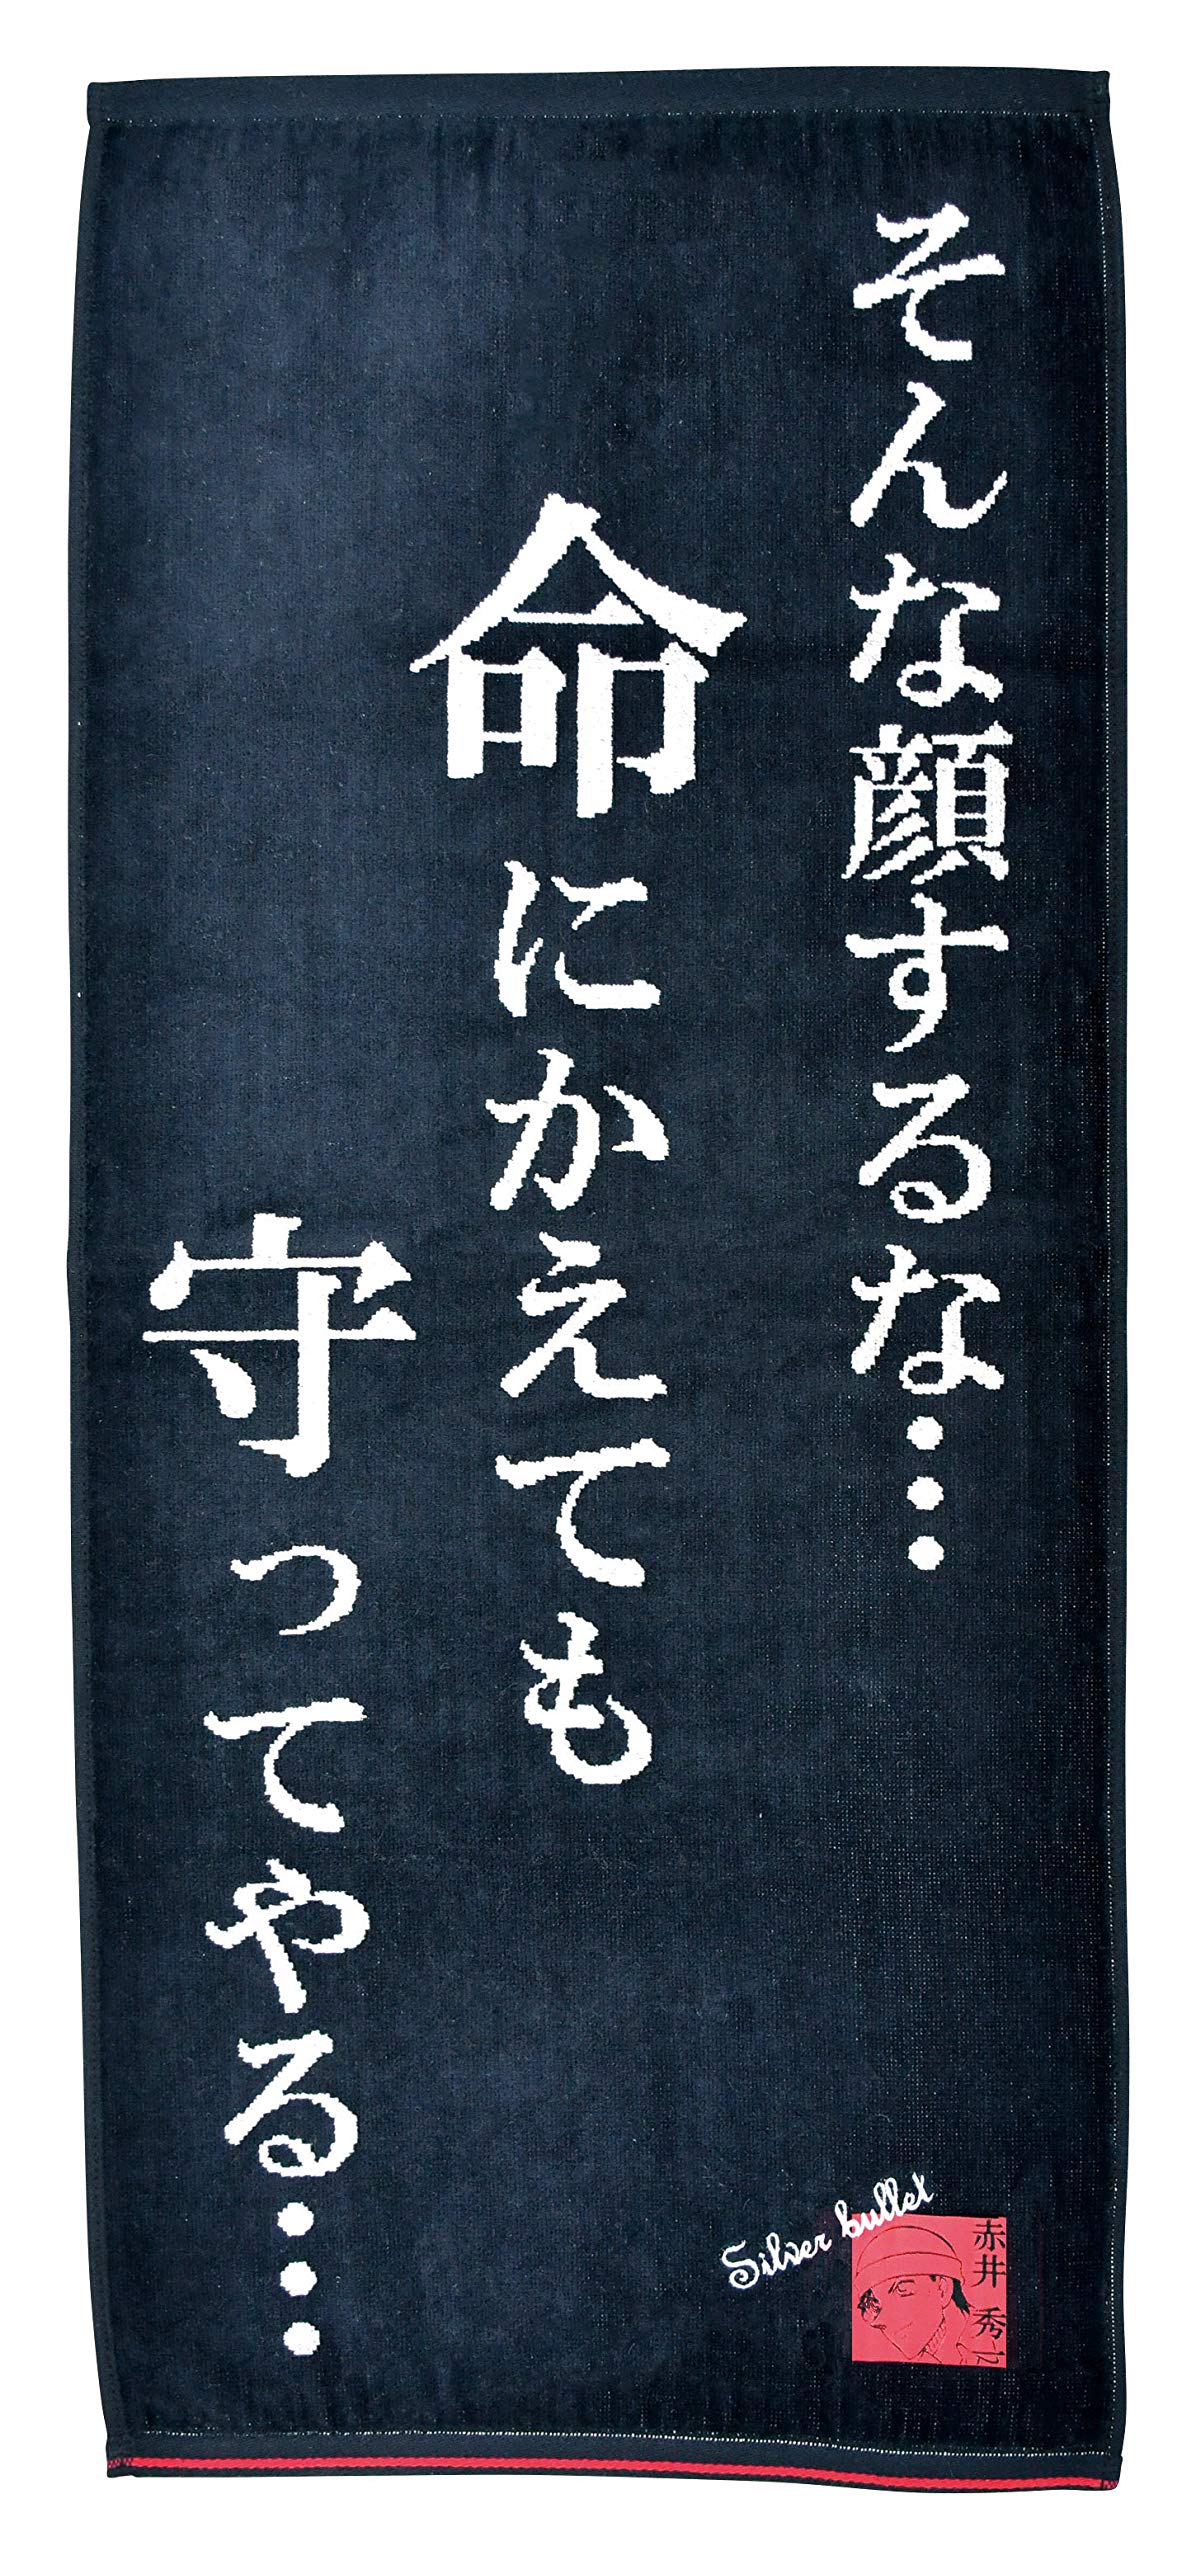 そんな顔するな…
命にかえても
守ってやる…
Silver bullet
赤井 秀一